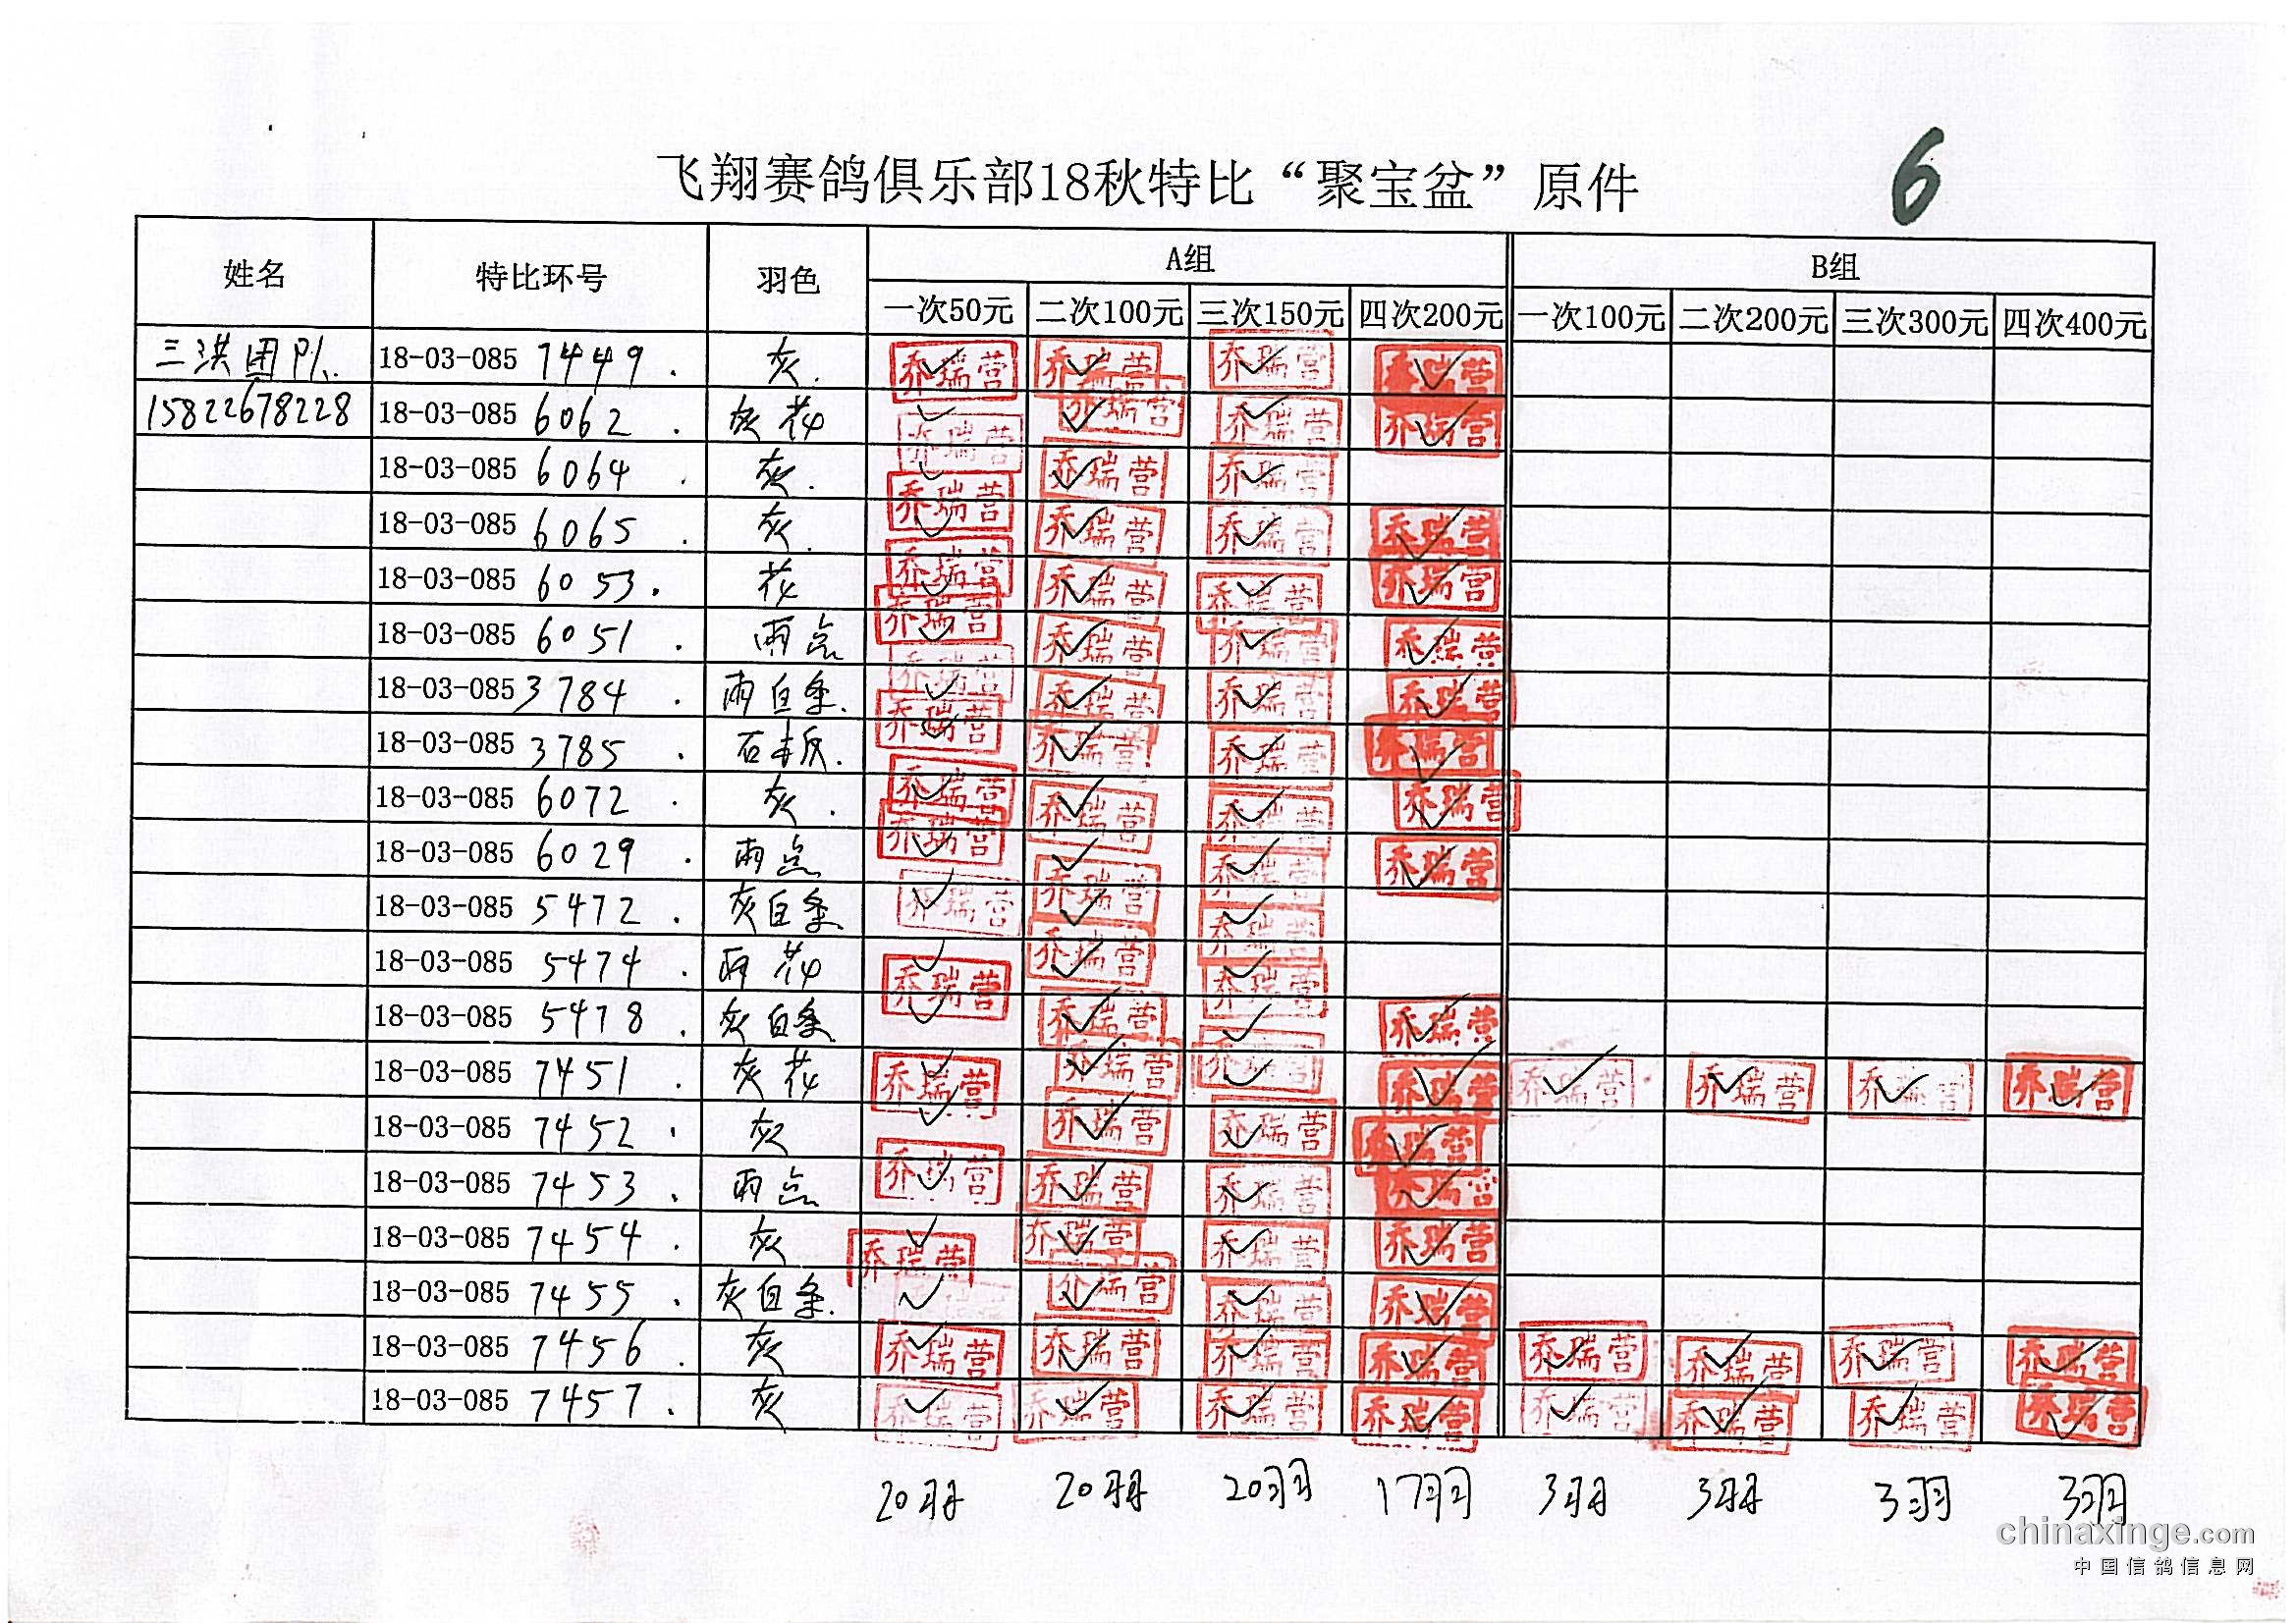 飞翔赛鸽俱乐部18秋特比“聚宝盆”原件
6
姓名 特比环号 羽色 A组 B组
一次50元 二次100元 三次150元 四次200元 一次100元 二次200元 三次300元 四次400元
三洪团队 18-03-085 7449. 灰. 乔瑞营 乔瑞营 乔瑞营 乔瑞营
15822678228 18-03-085 6062. 灰花 乔瑞营 乔瑞营 乔瑞营 乔瑞营
18-03-085 6064. 灰. 乔瑞营 乔瑞营 乔瑞营
18-03-085 6065. 灰. 乔瑞营 乔瑞营 乔瑞营 乔瑞营
18-03-085 6053. 花 乔瑞营 乔瑞营 乔瑞营 乔瑞营
18-03-085 6051. 雨点 乔瑞营 乔瑞营 乔瑞营 乔瑞营
18-03-085 3784. 雨白条. 乔瑞营 乔瑞营 乔瑞营 乔瑞营
18-03-085 3785. 石板. 乔瑞营 乔瑞营 乔瑞营 乔瑞营
18-03-085 6072. 灰. 乔瑞营 乔瑞营 乔瑞营 乔瑞营
18-03-085 6029. 雨点 乔瑞营 乔瑞营 乔瑞营 乔瑞营
18-03-085 5472. 灰白条 乔瑞营 乔瑞营 乔瑞营
18-03-085 5474. 雨花 乔瑞营 乔瑞营 乔瑞营
18-03-085 5478. 灰白条 乔瑞营 乔瑞营 乔瑞营
18-03-085 7451. 灰花 乔瑞营 乔瑞营 乔瑞营 乔瑞营 乔瑞营 乔瑞营 乔瑞营 乔瑞营
18-03-085 7452. 灰 乔瑞营 乔瑞营 乔瑞营
18-03-085 7453. 雨点 乔瑞营 乔瑞营 乔瑞营 乔瑞营
18-03-085 7454. 灰 乔瑞营 乔瑞营 乔瑞营 乔瑞营
18-03-085 7455. 灰白条. 乔瑞营 乔瑞营 乔瑞营
18-03-085 7456. 灰 乔瑞营 乔瑞营 乔瑞营 乔瑞营 乔瑞营 乔瑞营 乔瑞营 乔瑞营
18-03-085 7457. 灰 乔瑞营 乔瑞营 乔瑞营 乔瑞营 乔瑞营 乔瑞营 乔瑞营 乔瑞营
20羽 20羽 20羽 17羽 3羽 3羽 3羽 3羽
chinaxinge.com
中国信鸽信息网